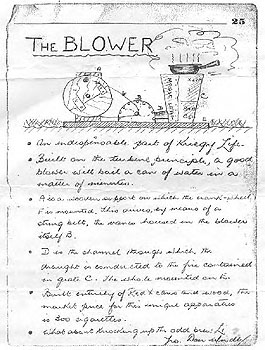 25
THE BLOWER
• An indispensable part of Kriegy Life.
• Built on the turbine principle, a good
blower will boil a can of water in a
matter of minutes.
• A is a wooden support on which the crank-wheel
F is mounted, this drives, by means of a
string belt, the vanes housed in the blower
itself B.
• D is the channel through which the
draught is conducted to the fire contained
in grate C. The whole mounted on
• Built entirely of Red X cans and wood, the
market price for this unique apparatus
is 300 cigarettes.
• What about knocking up the odd brew